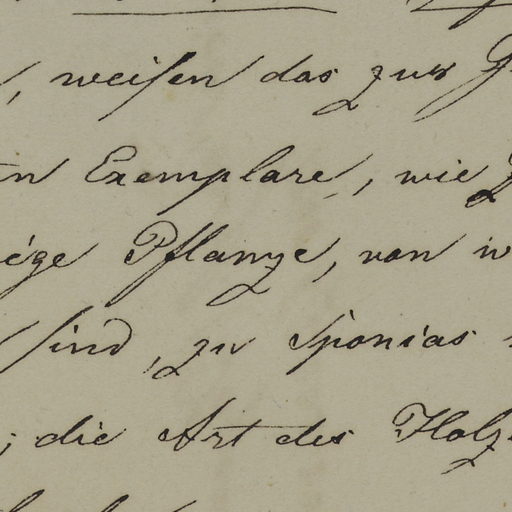 , weisen das zur
Exemplare, wie
Pflanze, von
sind, zu Sponias
; die Art des Holz